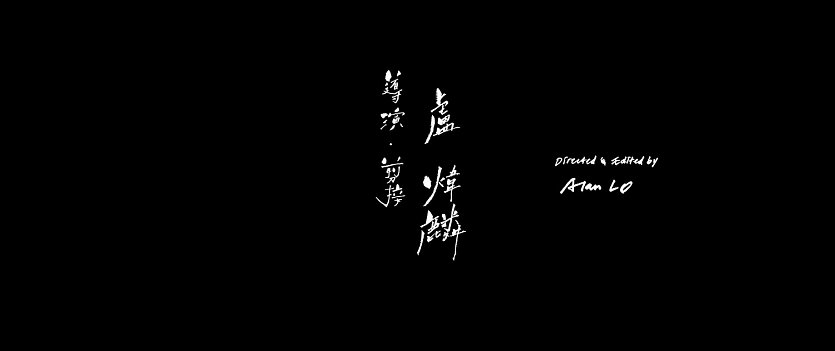 導演·剪接
盧煒麟
Directed & Edited by
Alan Lo